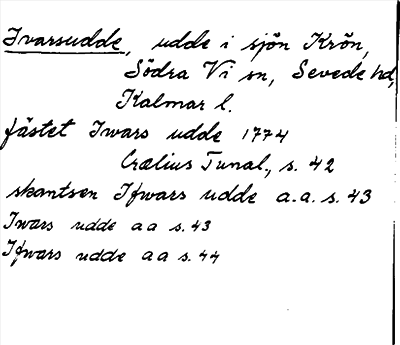 Ivarsudde, udde i sjön Krön,
Södra Vi sn, Sevede hd,
Kalmar l.
fästet Iwars udde 1774
Crælius Tunal., s. 42
skantsen Ifwars udde a.a. s. 43
Iwars udde a a s. 43
Ifwars udde a a s. 44